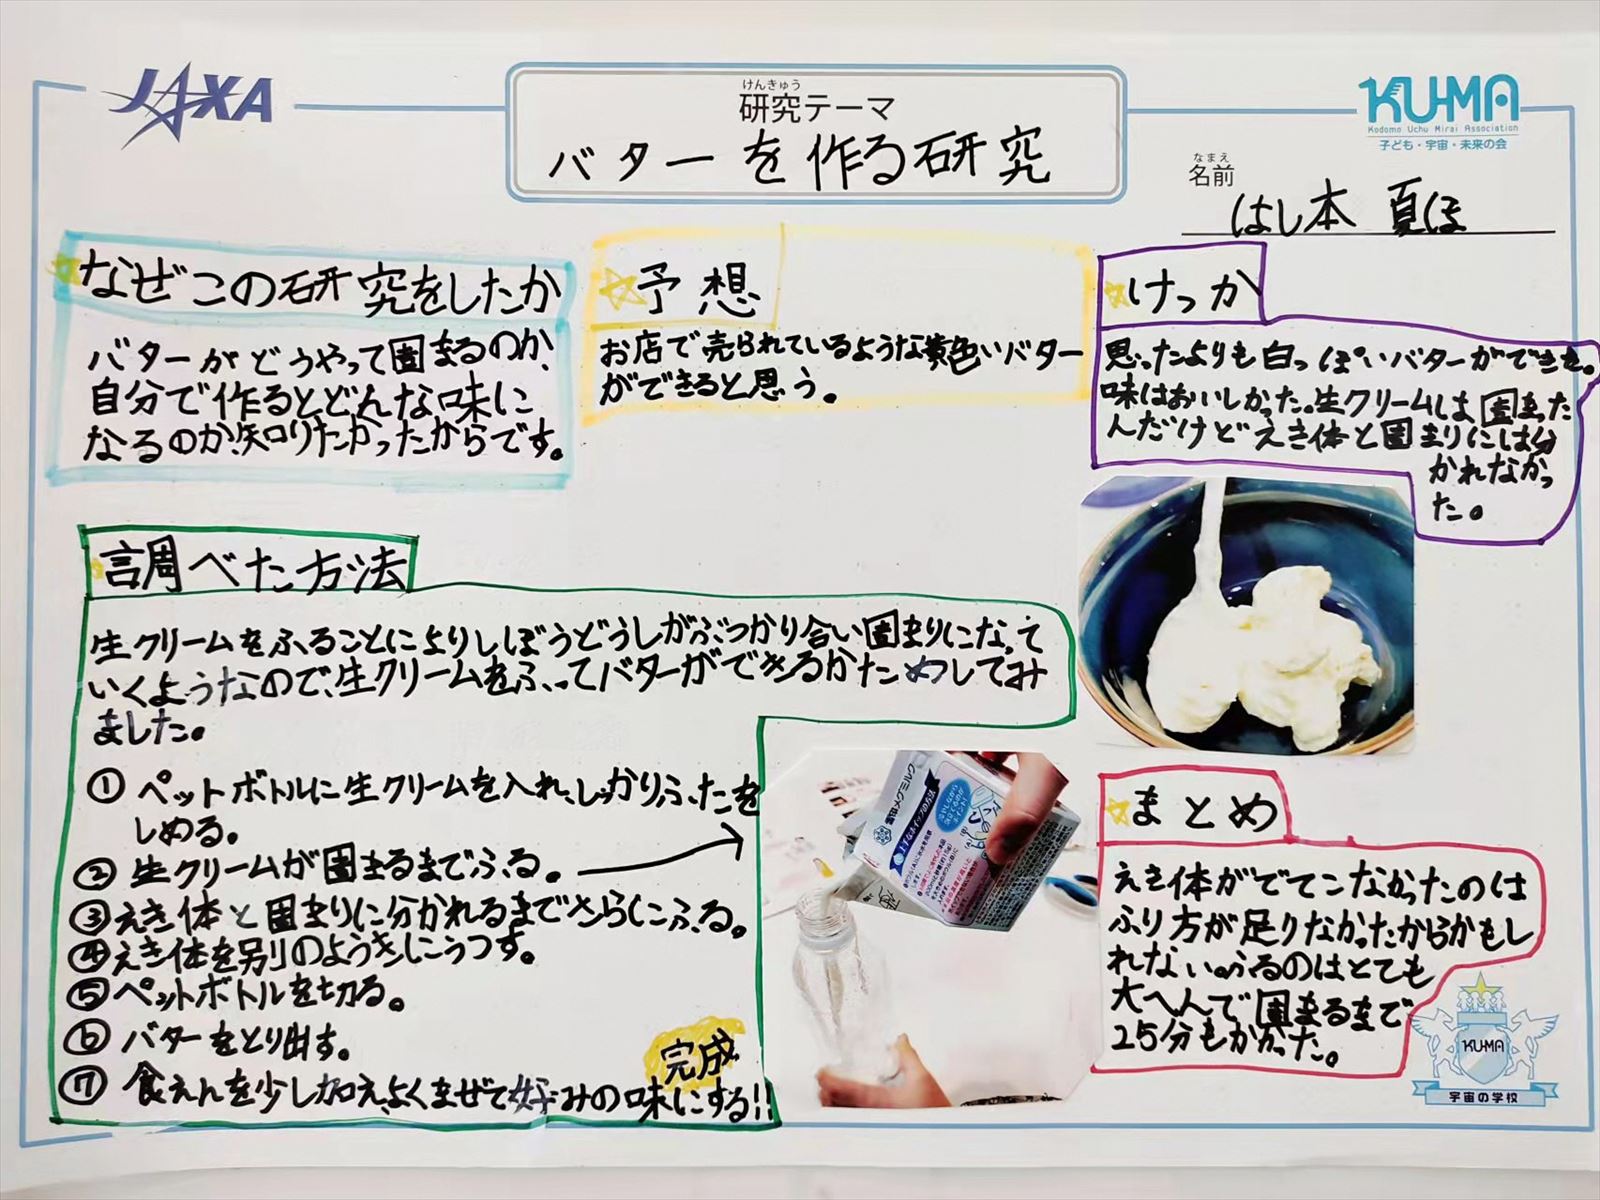 JAXA
けんきゅう
研究テーマ
バターを作る研究
KU-MA
Kodomo Uchu Mirai Association
子ども・宇宙・未来の会
なまえ
名前
はし本 夏ほ
なぜこの研究をしたか
バターがどうやって固まるのか、
自分で作るとどんな味に
なるのか知りたかったからです。
予想
お店で売られているような黄色いバター
ができると思う。
けっか
思ったよりも白っぽいバターができた。
味はおいしかった。生クリームは固まった
んだけどえき体と固まりには分
かれなかっ
た。
調べた方法
生クリームをふることによりしぼうどうしがぶつかり合い固まりになって
いくようなので、生クリームをふってバターができるかためしてみ
ました。
① ペットボトルに生クリームを入れ、しっかりふたを
しめる。
② 生クリームが固まるまでふる。
③ えき体と固まりに分かれるまでさらにふる。
④ えき体を別のようきにうつす。
⑤ ペットボトルを切る。
⑥ バターをとり出す。
⑦ 食えんを少し加え、よくまぜて好みの味にする!!
完成
雪印メグミルク
上手なホイップの方法
まとめ
えき体がでてこなかったのは
ふり方が足りなかったからかもし
れない。ふるのはとても
大へんで固まるまで
25分もかかった。
KU-MA
宇宙の学校